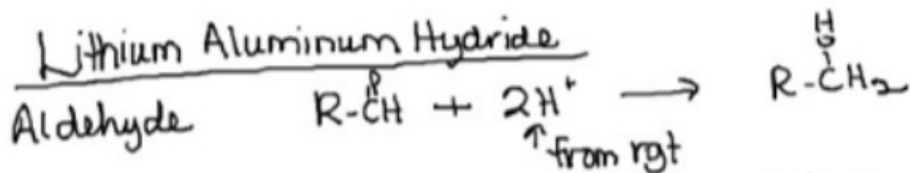 Lithium Aluminum Hydride
H
O
O
Aldehyde R-CH + 2H⁺ → R-CH₂
↑ from rgt